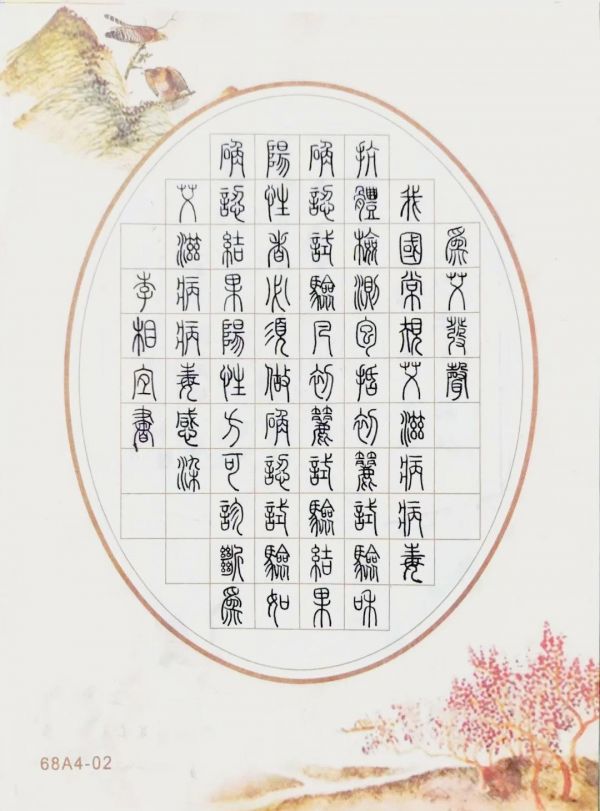 為艾發聲
我國常規艾滋病病毒
抗體檢測包括初籭試驗和
確認試驗凡初籭試驗結果
陽性者必須做確認試驗如
確認結果陽性方可診斷為
艾滋病病毒感染
李相宜書
68A4-02